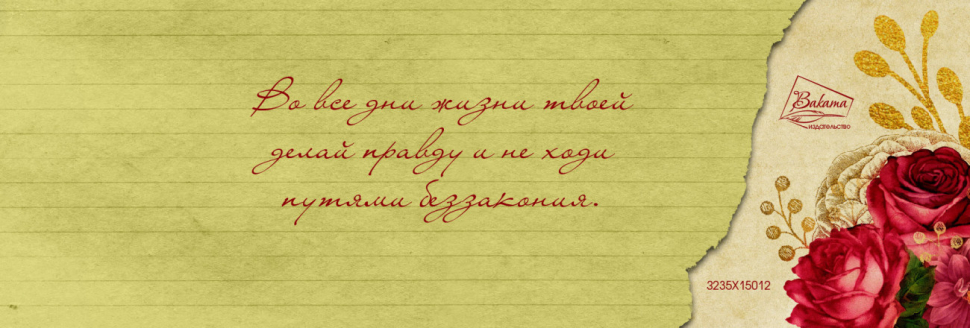 Во все дни жизни твоей
делай правду и не ходи
путями беззакония.
Ваката
издательство
3235X15012